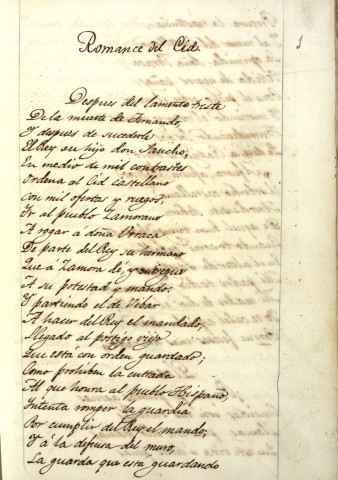 Romance del Cid.
1
Despues del lamento triste
De la muerte de Fernando,
Y despues de sucederle
El Rey su hijo don Sancho,
En medio de mil contrastes
Ordena al Cid castellano
Con mil ofertas y ruegos,
Ir al pueblo Zamorano
A rogar a doña Urraca
De parte del Rey su hermano
Que á Zamora dé, y entregue
A su potestad y mando:
Y partiendo el de Vibar
A hacer del Rey el mandado,
Llegado al postigo viejo
Que está con orden guardado;
Como prohiben la entrada
Al que honra al pueblo Hispano,
Intenta romper la guardia
Por cumplir del Rey el mando;
Y á la defensa del muro,
La guarda que está guardando